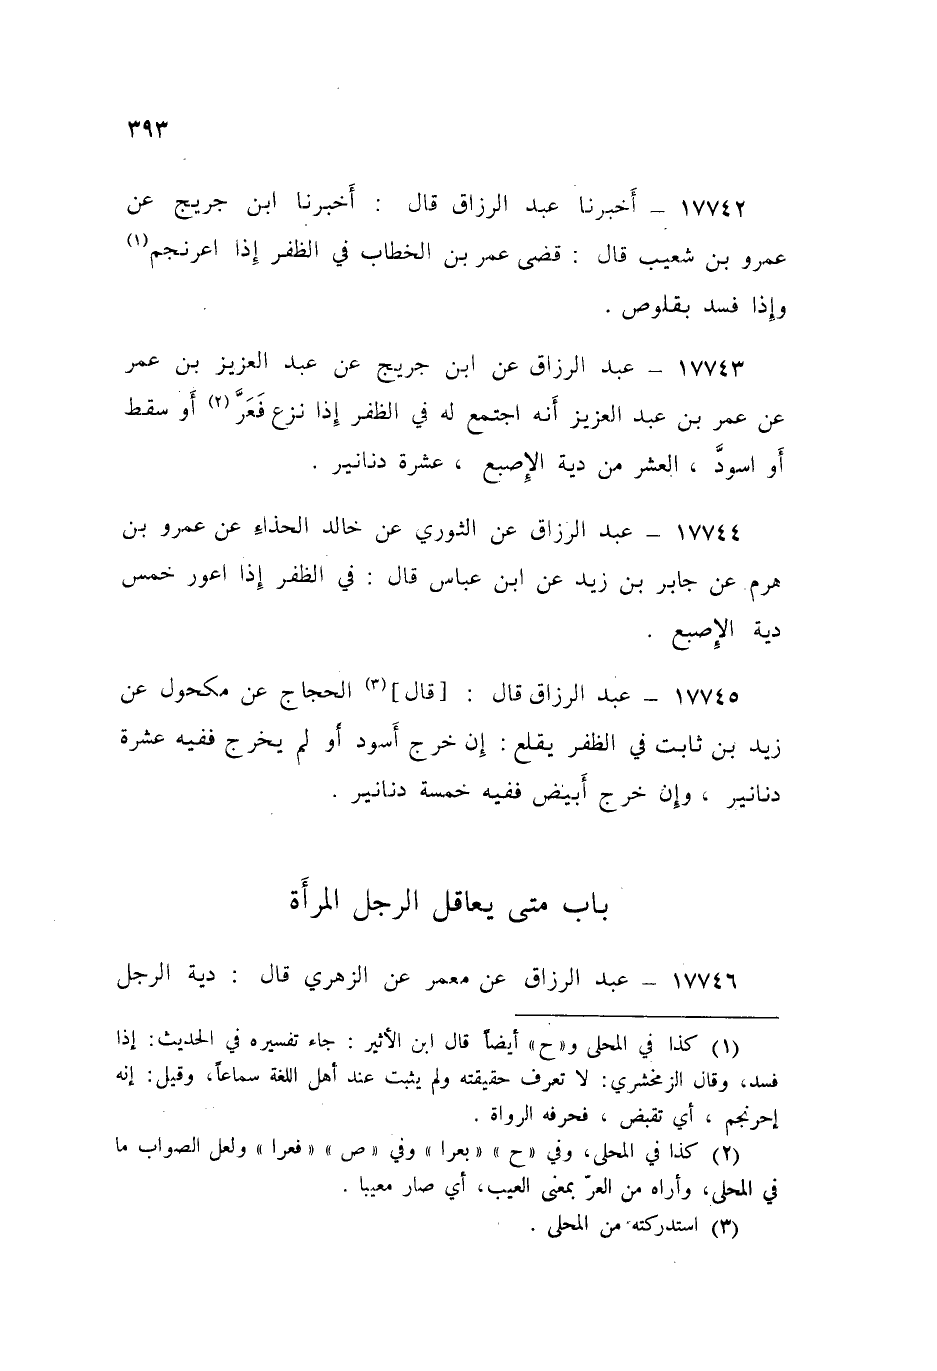 ٣٩٣
١٧٧٤٢ – أَخبرنا عبد الرزاق قال : أَخبرنا ابن جريج عن
عمرو بن شعيب قال : قضى عمر بن الخطاب في الظفر إِذا اعرنجم(١)
وإِذا فسد بقلوص .
١٧٧٤٣ – عبد الرزاق عن ابن جريج عن عبد العزيز بن عمر
عن عمر بن عبد العزيز أَنه اجتمع له في الظفر إِذا نزع فَعَرَّ(٢) أَو سقط
أَو اسودَّ ، العشر من دية الإِصبع ، عشرة دنانير .
١٧٧٤٤ – عبد الرزاق عن الثوري عن خالد الحذاء عن عمرو بن
هرم عن جابر بن زيد عن ابن عباس قال : في الظفر إِذا اعور خمس
دية الإِصبع .
١٧٧٤٥ – عبد الرزاق قال : [قال](٣) الحجاج عن مكحول عن
زيد بن ثابت في الظفر يقلع : إِن خرج أَسود أَو لم يخرج ففيه عشرة
دنانير ، وإِن خرج أَبيض ففيه خمسة دنانير .
باب متى يعاقل الرجل المرأَة
١٧٧٤٦ – عبد الرزاق عن معمر عن الزهري قال : دية الرجل
(١) كذا في المحلى و«ح» أيضاً قال ابن الأثير : جاء تفسيره في الحديث: إذا
فسد، وقال الزمخشري: لا تعرف حقيقته ولم يثبت عند أهل اللغة سماعاً، وقيل: إنه
إحرنجم ، أي تقبض ، فحرفه الرواة .
(٢) كذا في المحلى، وفي «ح» «بعرا» وفي «ص» «فعرا» ولعل الصواب ما
في المحلى، وأراه من العرّ بمعنى العيب، أي صار معيبا .
(٣) استدركته من المحلى .